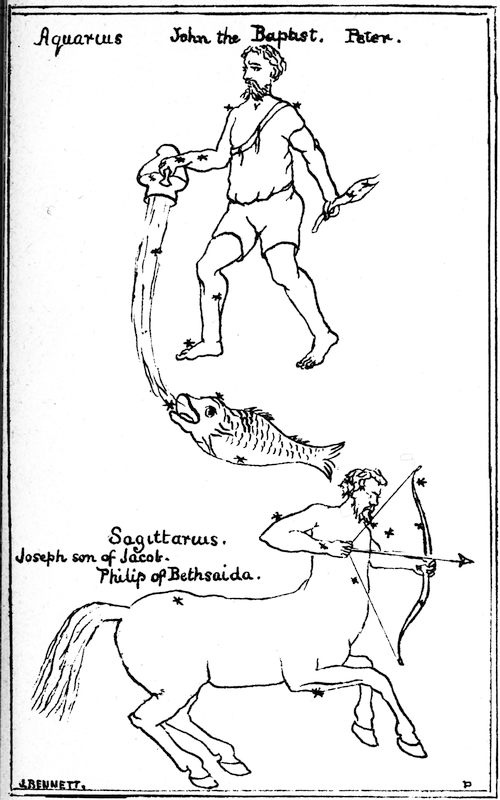 Aquarius John the Baptist. Peter.
Sagittarius.
Joseph son of Jacob.
Philip of Bethsaida.
J.BENNETT. P